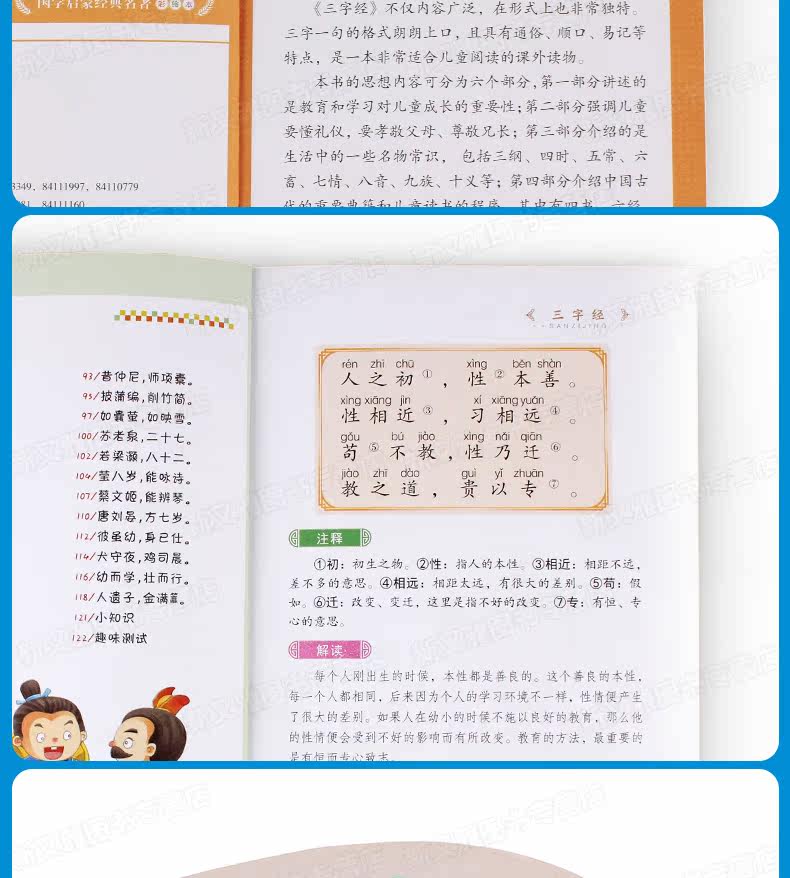 国学启蒙经典名著 彩绘本
3349，84111997，84110779
981，84111160
《三字经》不仅内容广泛，在形式上也非常独特。
三字一句的格式朗朗上口，且具有通俗、顺口、易记等
特点，是一本非常适合儿童阅读的课外读物。
本书的思想内容可分为六个部分，第一部分讲述的
是教育和学习对儿童成长的重要性；第二部分强调儿童
要懂礼仪，要孝敬父母、尊敬兄长；第三部分介绍的是
生活中的一些名物常识， 包括三纲、四时、五常、六
畜、七情、八音、九族、十义等；第四部分介绍中国古
代的重要典籍和儿童读书的程序，其中有四书、六经、
93/昔仲尼，师项橐。
95/披蒲编，削竹简。
97/如囊萤，如映雪。
100/苏老泉，二十七。
102/若梁灏，八十二。
104/莹八岁，能咏诗。
107/蔡文姬，能辨琴。
110/唐刘晏，方七岁。
112/彼虽幼，身己仕。
114/犬守夜，鸡司晨。
116/幼而学，壮而行。
118/人遗子，金满籯。
121/小知识
122/趣味测试
三字经
SANZIJING
rén zhī chū xìng běn shàn
人之初①，性②本善。
xìng xiāng jìn xí xiāng yuǎn
性相近③，习相远④。
gǒu bú jiào xìng nǎi qiān
苟⑤不教，性乃迁⑥。
jiào zhī dào guì yǐ zhuān
教之道，贵以专⑦。
注释
①初：初生之物。②性：指人的本性。③相近：相距不远，
差不多的意思。④相远：相距太远，有很大的差别。⑤苟：假
如。⑥迁：改变、变迁，这里是指不好的改变。⑦专：有恒、专
心的意思。
解读
每个人刚出生的时候，本性都是善良的。这个善良的本性，
每一个人都相同，后来因为个人的学习环境不一样，性情便产生
了很大的差别。如果人在幼小的时候不施以良好的教育，那么他
的性情便会受到不好的影响而有所改变。教育的方法，最重要的
是有恒而专心致志。